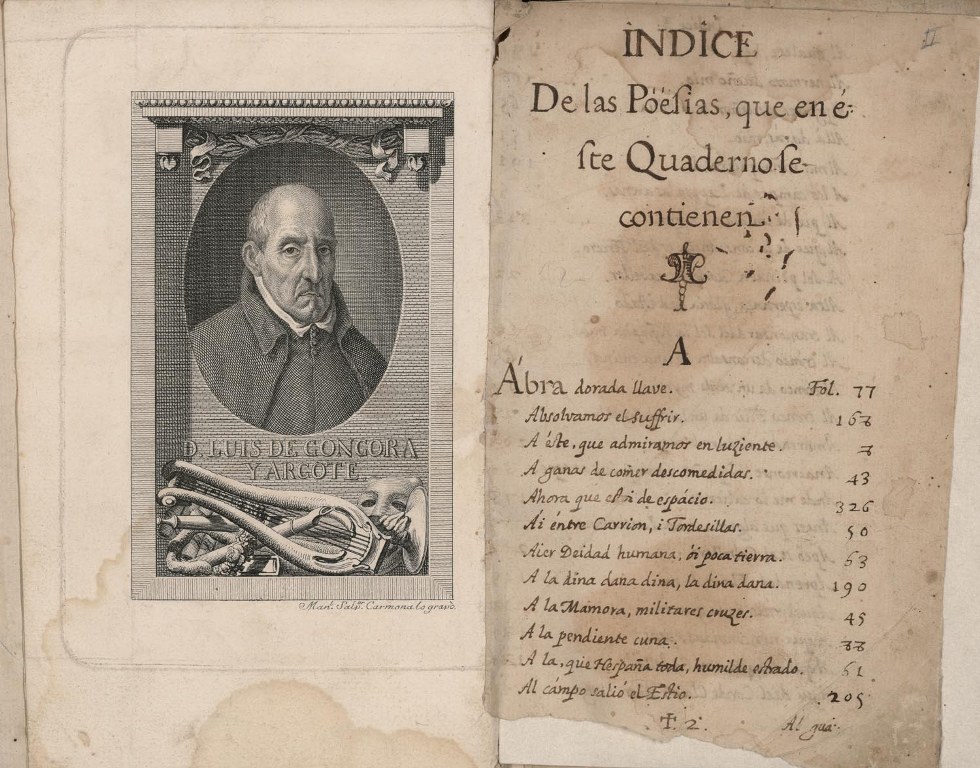 D. LUIS DE GONGORA
Y ARGOTE.
Man.l Salv.r Carmona lo gravò.
II
INDICE
De las Pöësias, que en é-
ste Quaderno se
contienen
A
Ábra dorada llave. Fol. 77
Absolvamos el suffrir. 168
A éste, que admiramos en luziente. 7
A ganas de comer descomedidas. 43
Ahora que está de espácio. 326
Ai éntre Carrion, i Tordesillas. 50
Aier Deidad humana, ói poca tierra. 63
A la dina dana dina, la dina dana. 190
A la Mamora, militares cruzes. 45
A la pendiente cuna. 77
A la, que Hespaña toda, humilde estrado. 61
Al cámpo salió el Estio. 205
T. 2. Al gua-